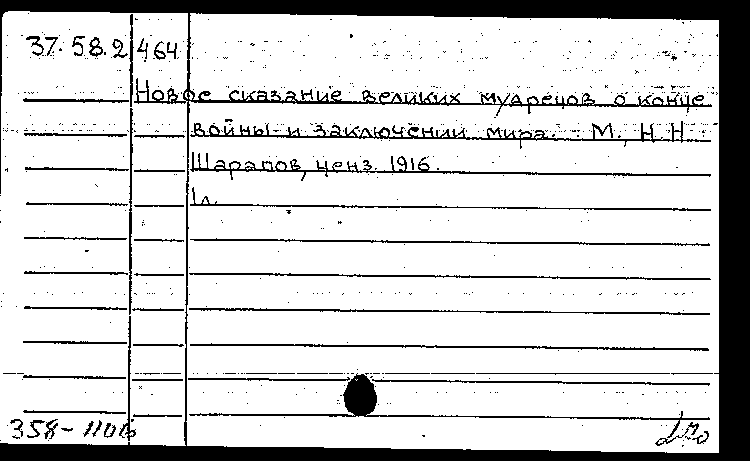 37.58.2 464
Новое сказание великих мудрецов о конце
войны и заключении мира. - М., Н.Н.
Шарапов, ценз. 1916.
1л.
358-110б